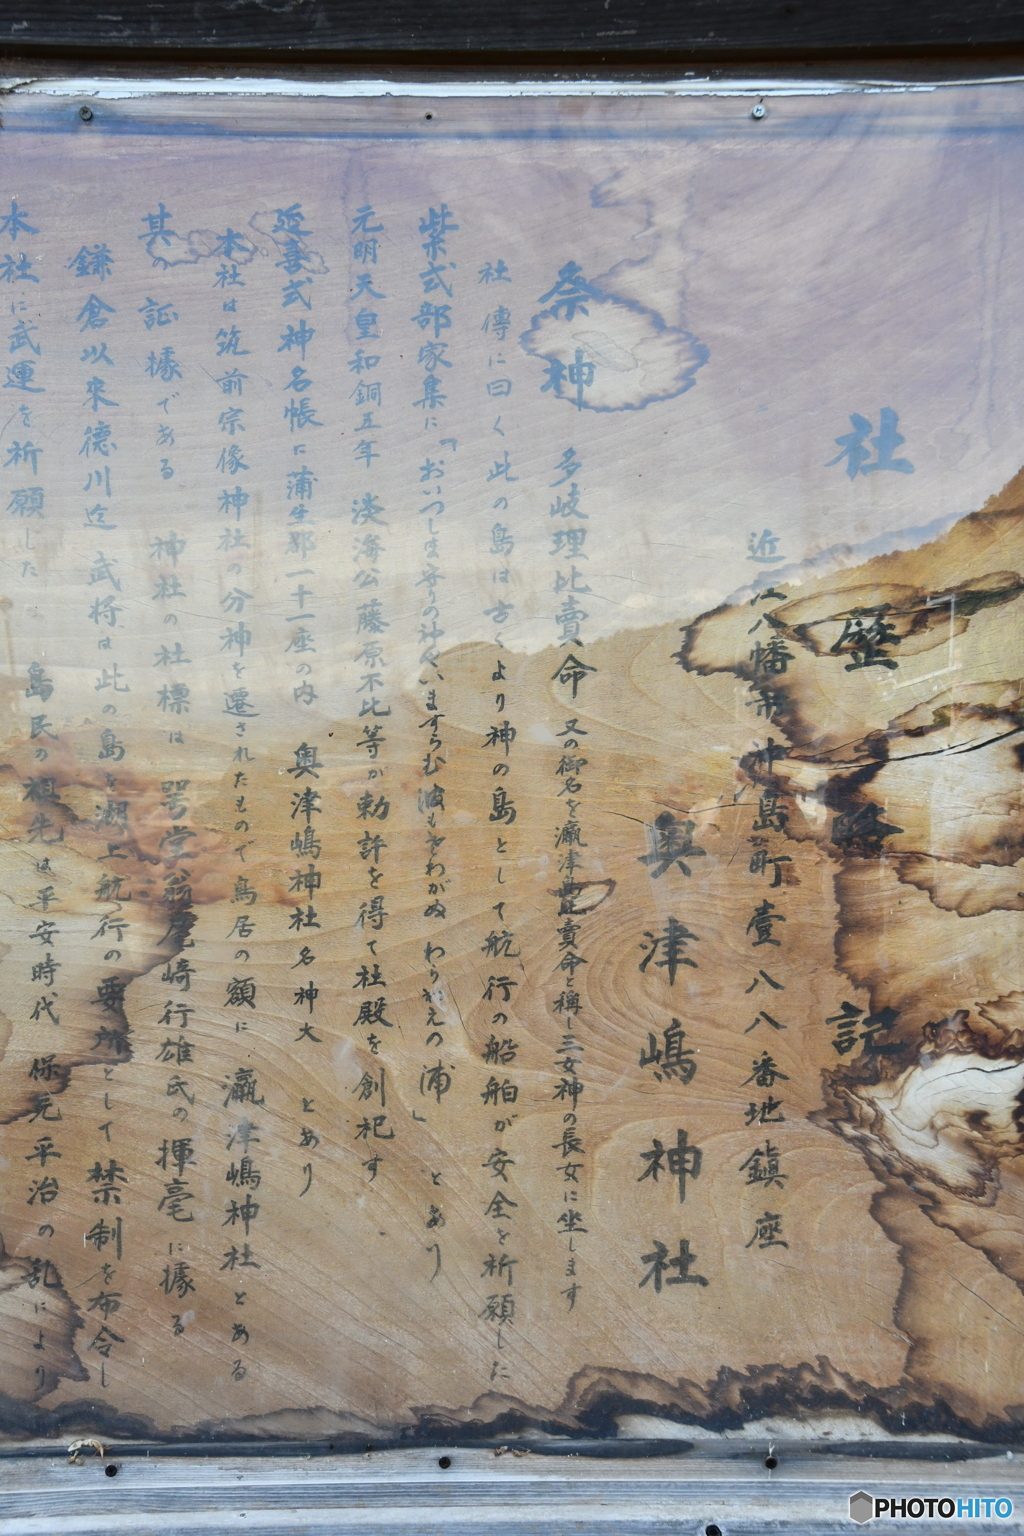 社歴略記
近江八幡市沖島町壹八八番地鎮座
奥津嶋神社
祭神 多岐理比賣命 又の御名を瀛津島比賣命と稱し三女神の長女に坐します
社傳に曰く此の島は古くより神の島として航行の船舶が安全を祈願した
紫式部家集に「おいつしま守りの神やいますらむ波もさわがぬわらわえの浦」とあり
元明天皇和銅五年 淡海公藤原不比等が勅許を得て社殿を創祀す
延喜式神名帳に蒲生郡一十一座の内 奥津嶋神社名神大 とあり
本社は筑前宗像神社の分神を遷されたもので鳥居の額に 瀛津嶋神社とある
其の証據である 神社の社標は 咢堂翁尾崎行雄氏の揮毫に據る
鎌倉以来德川迄 武将は此の島を湖上航行の要所として禁制を布令し
本社に武運を祈願した 島民の祖先は平安時代 保元平治の乱により
PHOTOHITO